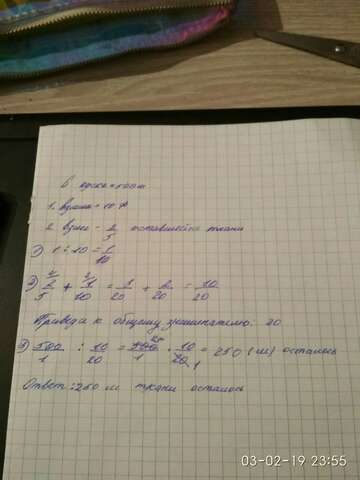 1.
2. Взяли - 2/5 оставшейся ткани
1) 1:10 = 1/10
2) 2/5 + 1/10 = 8/20 + 2/20 = 10/20
Приведа к общему знаменателю: 20
3) 500/1 : 10/20 = 500/1 · 10/20 = 250 (м) осталось
Ответ: 250 м ткани осталось
03-02-19 23:55